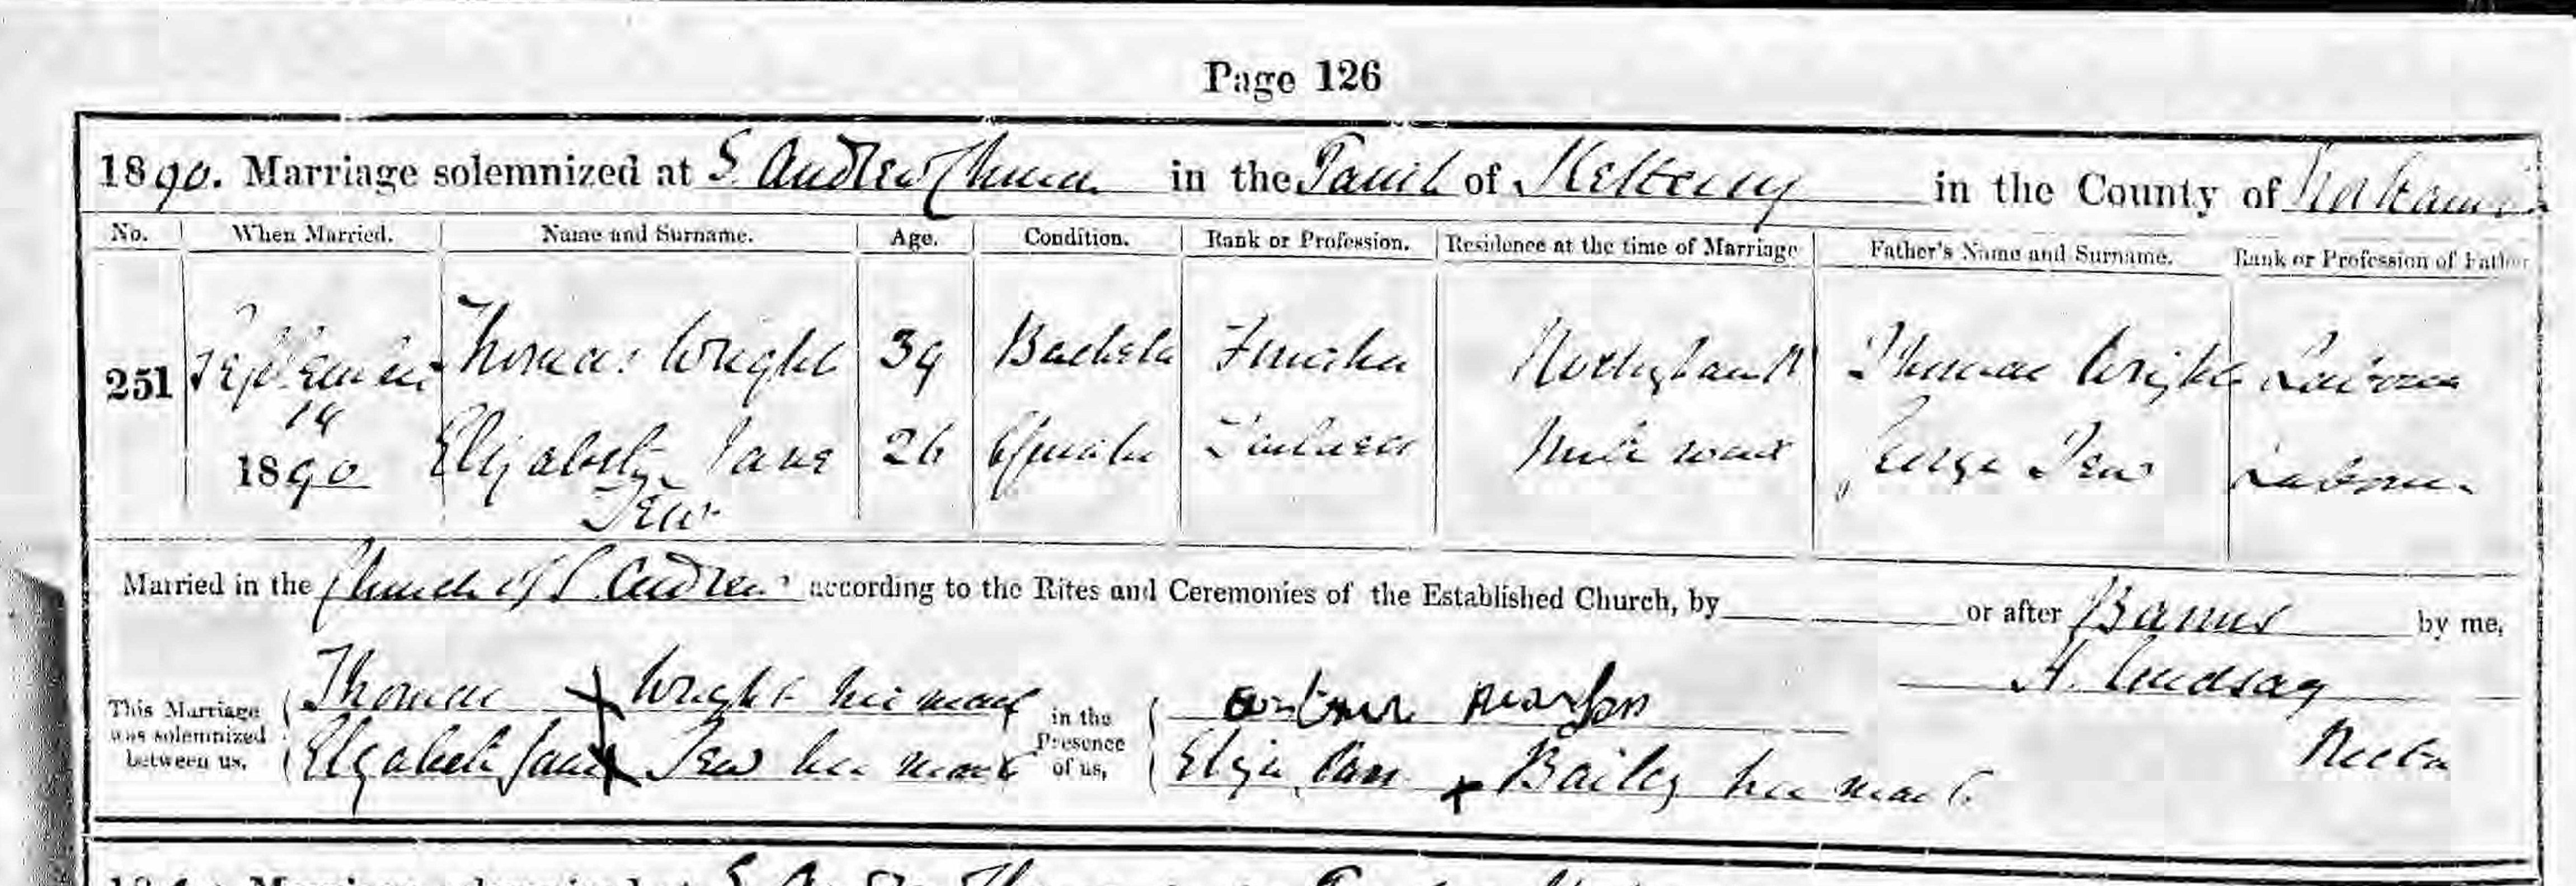 Page 126
1890. Marriage solemnized at S. Andrew Church in the Parish of Kettering in the County of
No. When Married. Name and Surname. Age. Condition. Rank or Profession. Residence at the time of Marriage Father's Name and Surname. Rank or Profession of Father
251 September Thomas Wright 39 Bachelor Finisher Thomas Wright Labourer
14
1890 Elizabeth Jane 26 Spinster George Tew Labourer
Tew
Married in the Church of S. Andrew according to the Rites and Ceremonies of the Established Church, by or after Banns by me,
This Marriage was solemnized between us,
Thomas x Wright his mark
Elizabeth Jane x Tew her mark
in the Presence of us,
Pearson
Eliza Ann x Bailey her mark
H. Lindsay
Rector